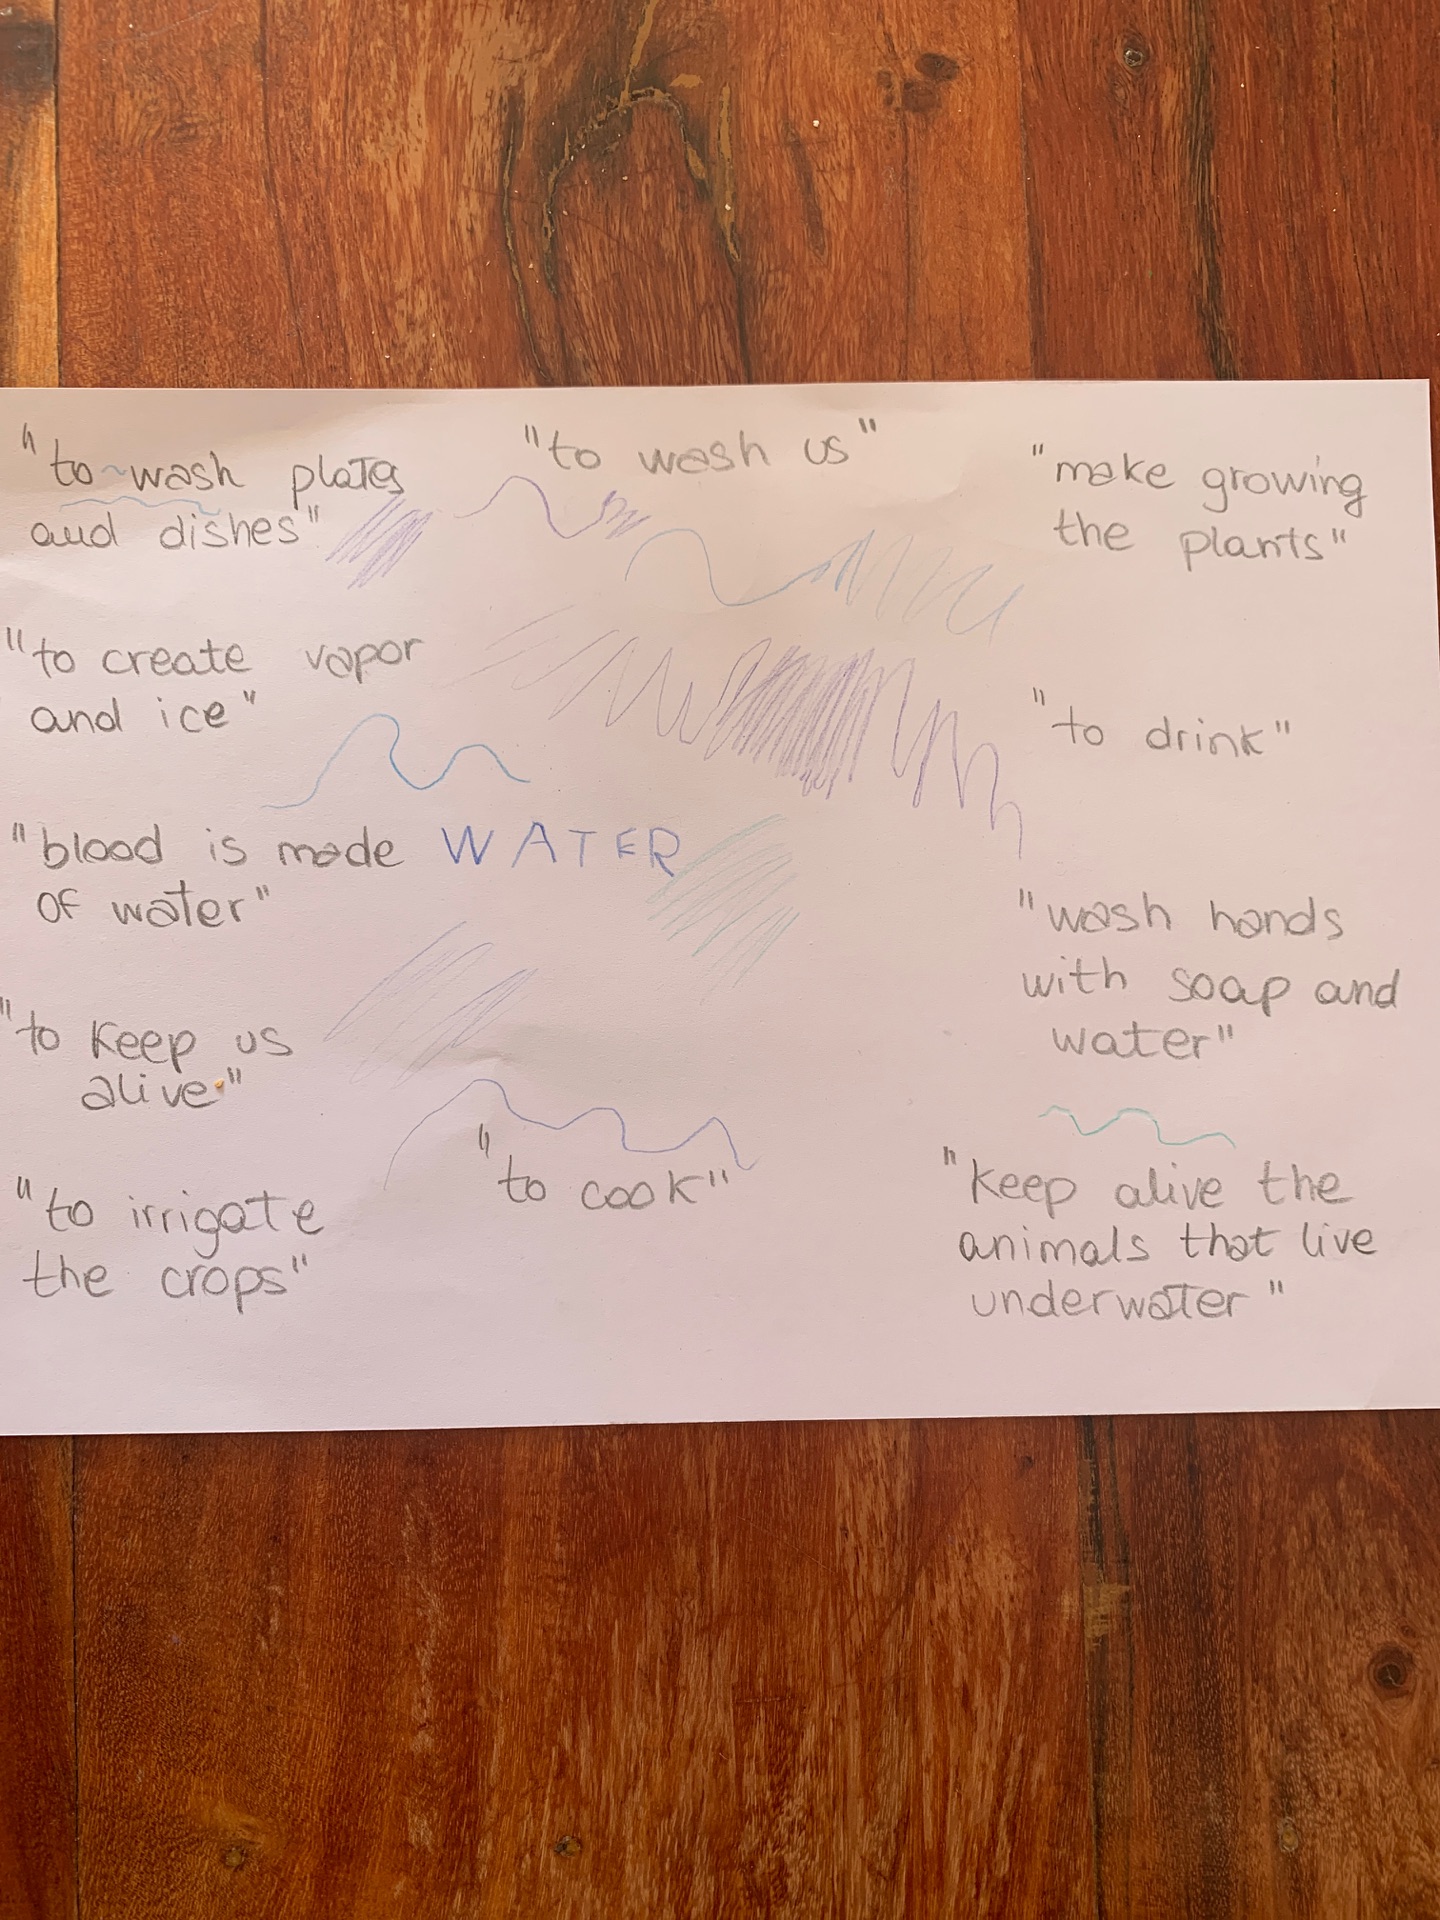 "to wash plates
and dishes"
"to wash us"
"make growing
the plants"
"to create vapor
and ice"
"to drink"
"blood is made
of water"
WATER
"wash hands
with soap and
water"
"to keep us
alive"
"to cook"
"keep alive the
animals that live
underwater"
"to irrigate
the crops"